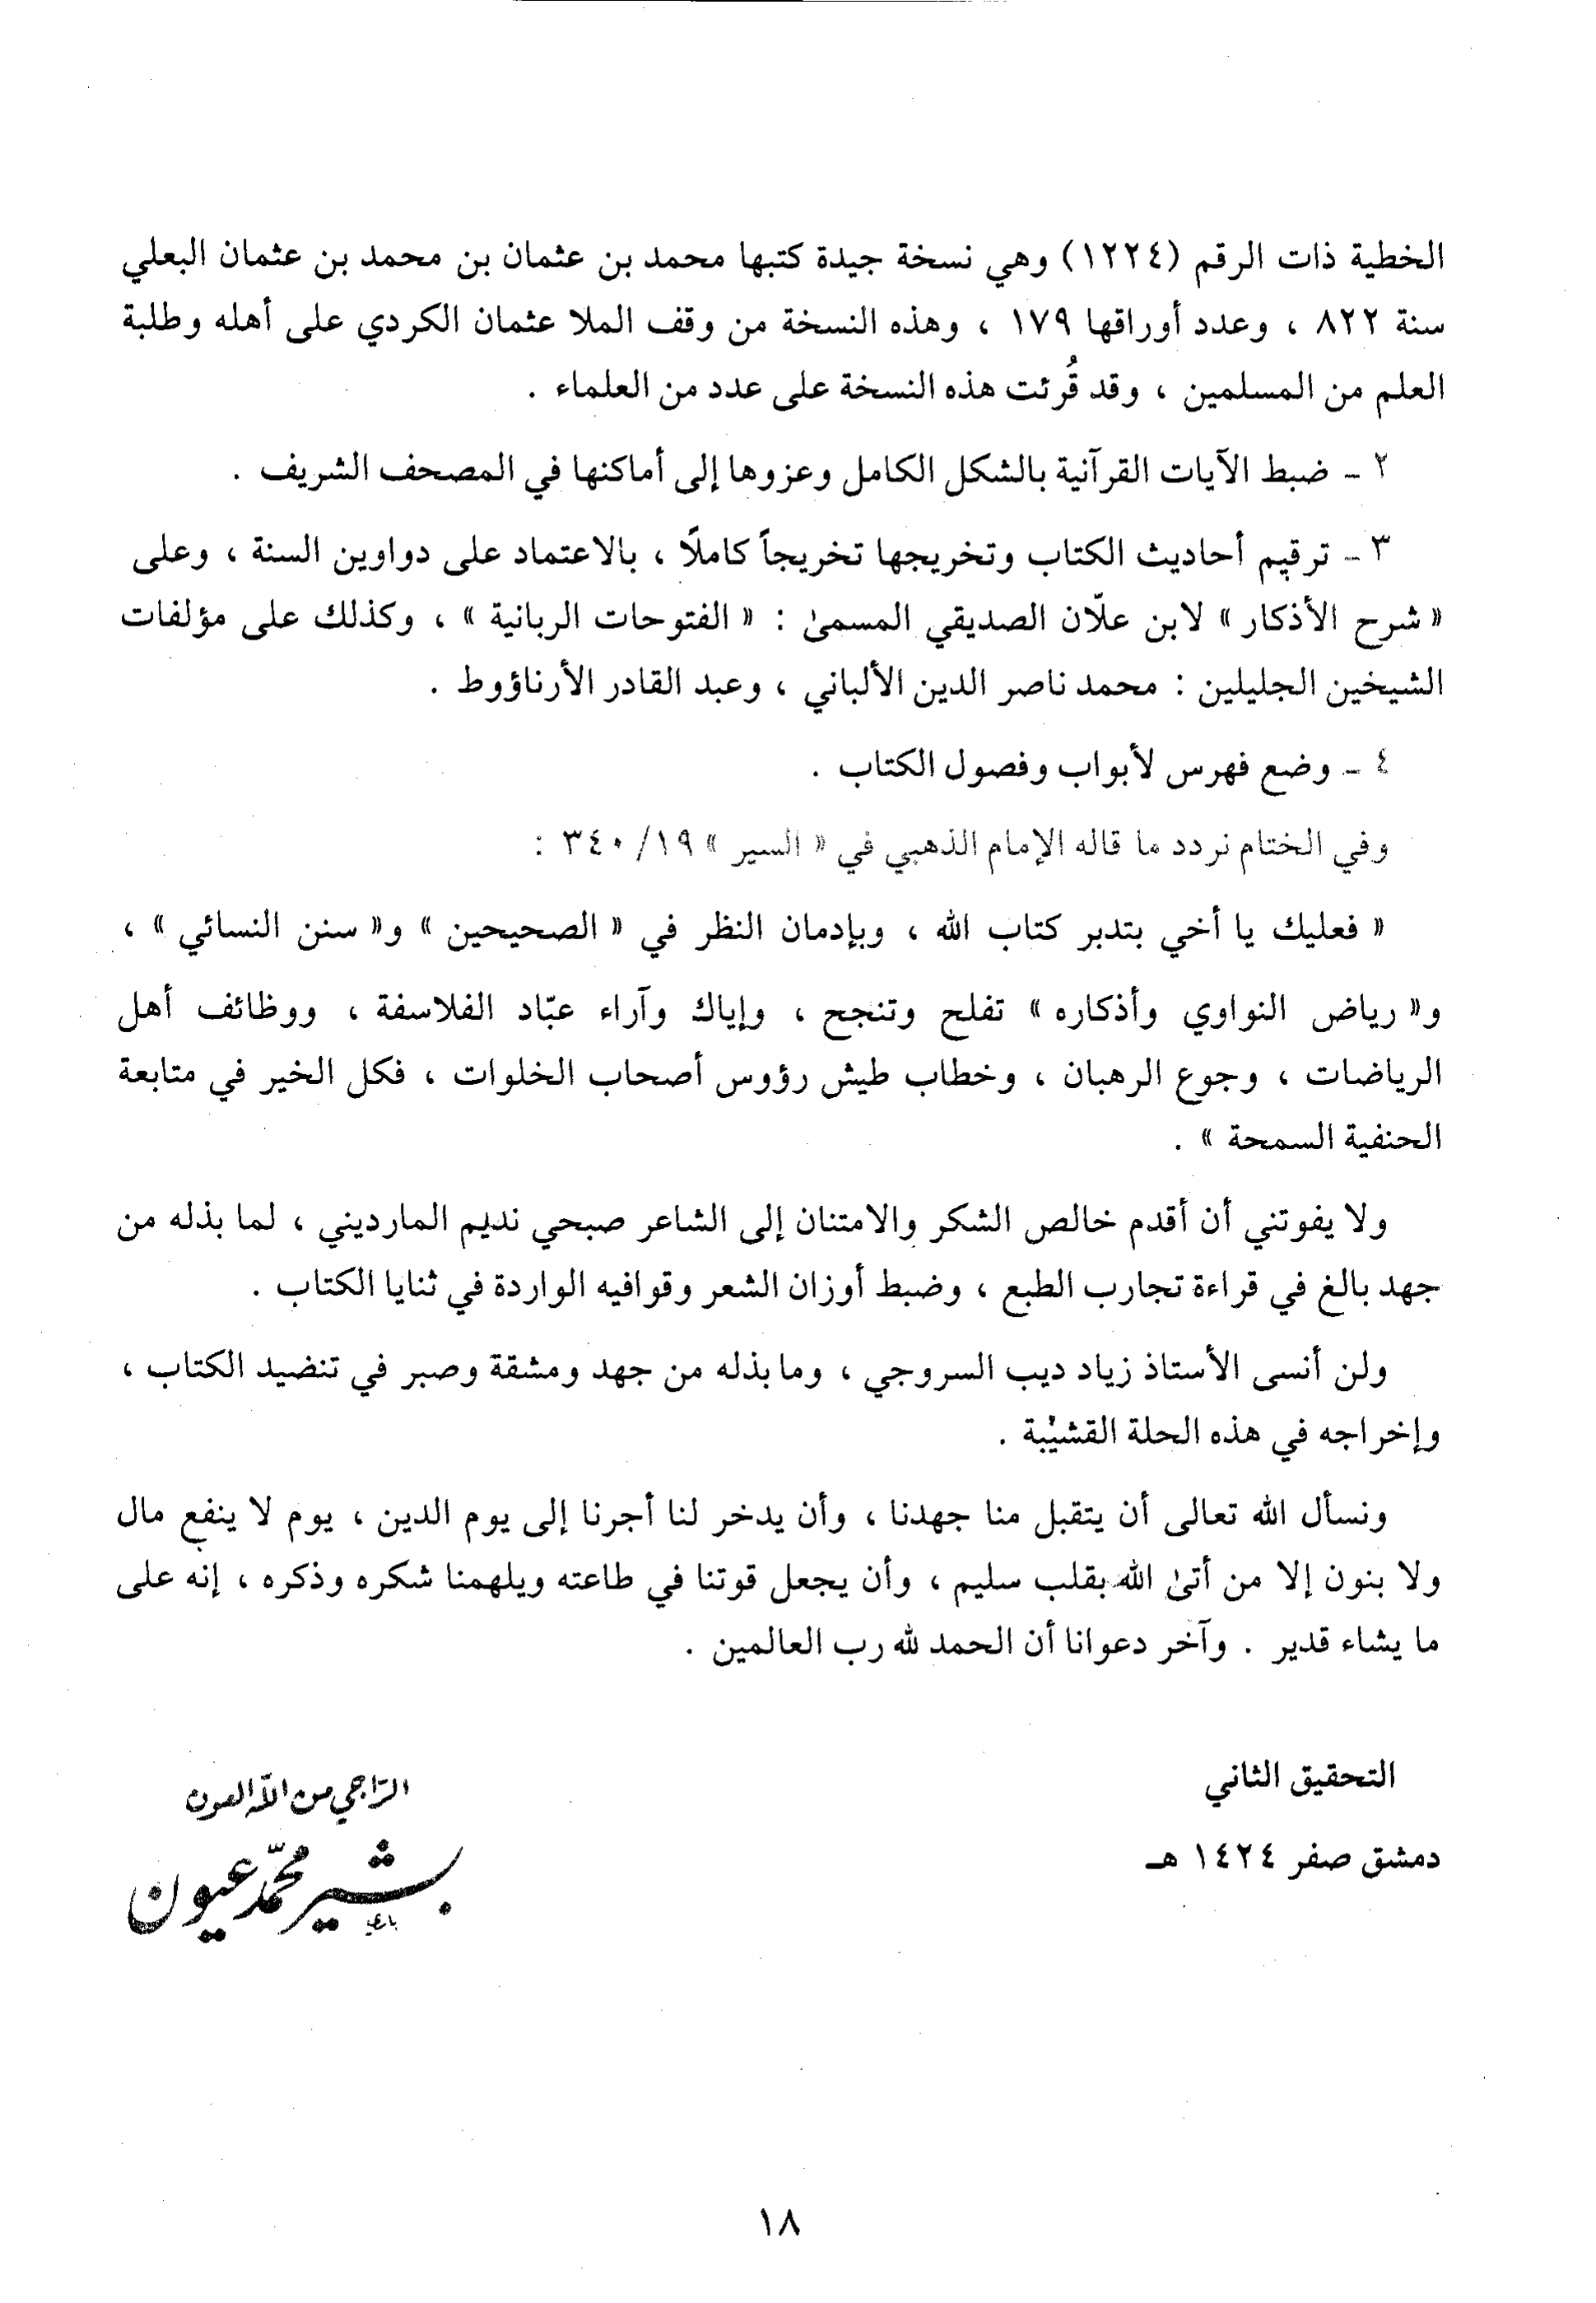 الخطية ذات الرقم (١٢٢٤) وهي نسخة جيدة كتبها محمد بن عثمان بن محمد بن عثمان البعلي
سنة ٨٢٢ ، وعدد أوراقها ١٧٩ ، وهذه النسخة من وقف الملا عثمان الكردي على أهله وطلبة
العلم من المسلمين ، وقد قُرئت هذه النسخة على عدد من العلماء .
٢ - ضبط الآيات القرآنية بالشكل الكامل وعزوها إلى أماكنها في المصحف الشريف .
٣ - ترقيم أحاديث الكتاب وتخريجها تخريجاً كاملًا ، بالاعتماد على دواوين السنة ، وعلى
« شرح الأذكار » لابن علّان الصديقي المسمىٰ : « الفتوحات الربانية » ، وكذلك على مؤلفات
الشيخين الجليلين : محمد ناصر الدين الألباني ، وعبد القادر الأرناؤوط .
٤ - وضع فهرس لأبواب وفصول الكتاب .
وفي الختام نردد ما قاله الإمام الذهبي في « السير » ١٩/ ٣٤٠ :
« فعليك يا أخي بتدبر كتاب الله ، وبإدمان النظر في « الصحيحين » و« سنن النسائي » ،
و« رياض النواوي وأذكاره » تفلح وتنجح ، وإياك وآراء عبّاد الفلاسفة ، ووظائف أهل
الرياضات ، وجوع الرهبان ، وخطاب طيش رؤوس أصحاب الخلوات ، فكل الخير في متابعة
الحنفية السمحة » .
ولا يفوتني أن أقدم خالص الشكر والامتنان إلى الشاعر صبحي نديم المارديني ، لما بذله من
جهد بالغ في قراءة تجارب الطبع ، وضبط أوزان الشعر وقوافيه الواردة في ثنايا الكتاب .
ولن أنسى الأستاذ زياد ديب السروجي ، وما بذله من جهد ومشقة وصبر في تنضيد الكتاب ،
وإخراجه في هذه الحلة القشيْبة .
ونسأل الله تعالى أن يتقبل منا جهدنا ، وأن يدخر لنا أجرنا إلى يوم الدين ، يوم لا ينفع مال
ولا بنون إلا من أتىٰ الله بقلب سليم ، وأن يجعل قوتنا في طاعته ويلهمنا شكره وذكره ، إنه على
ما يشاء قدير . وآخر دعوانا أن الحمد لله رب العالمين .
التحقيق الثاني
دمشق صفر ١٤٢٤ هـ
الرّاجي من اللّه العون
بشير محمّد عيون
١٨